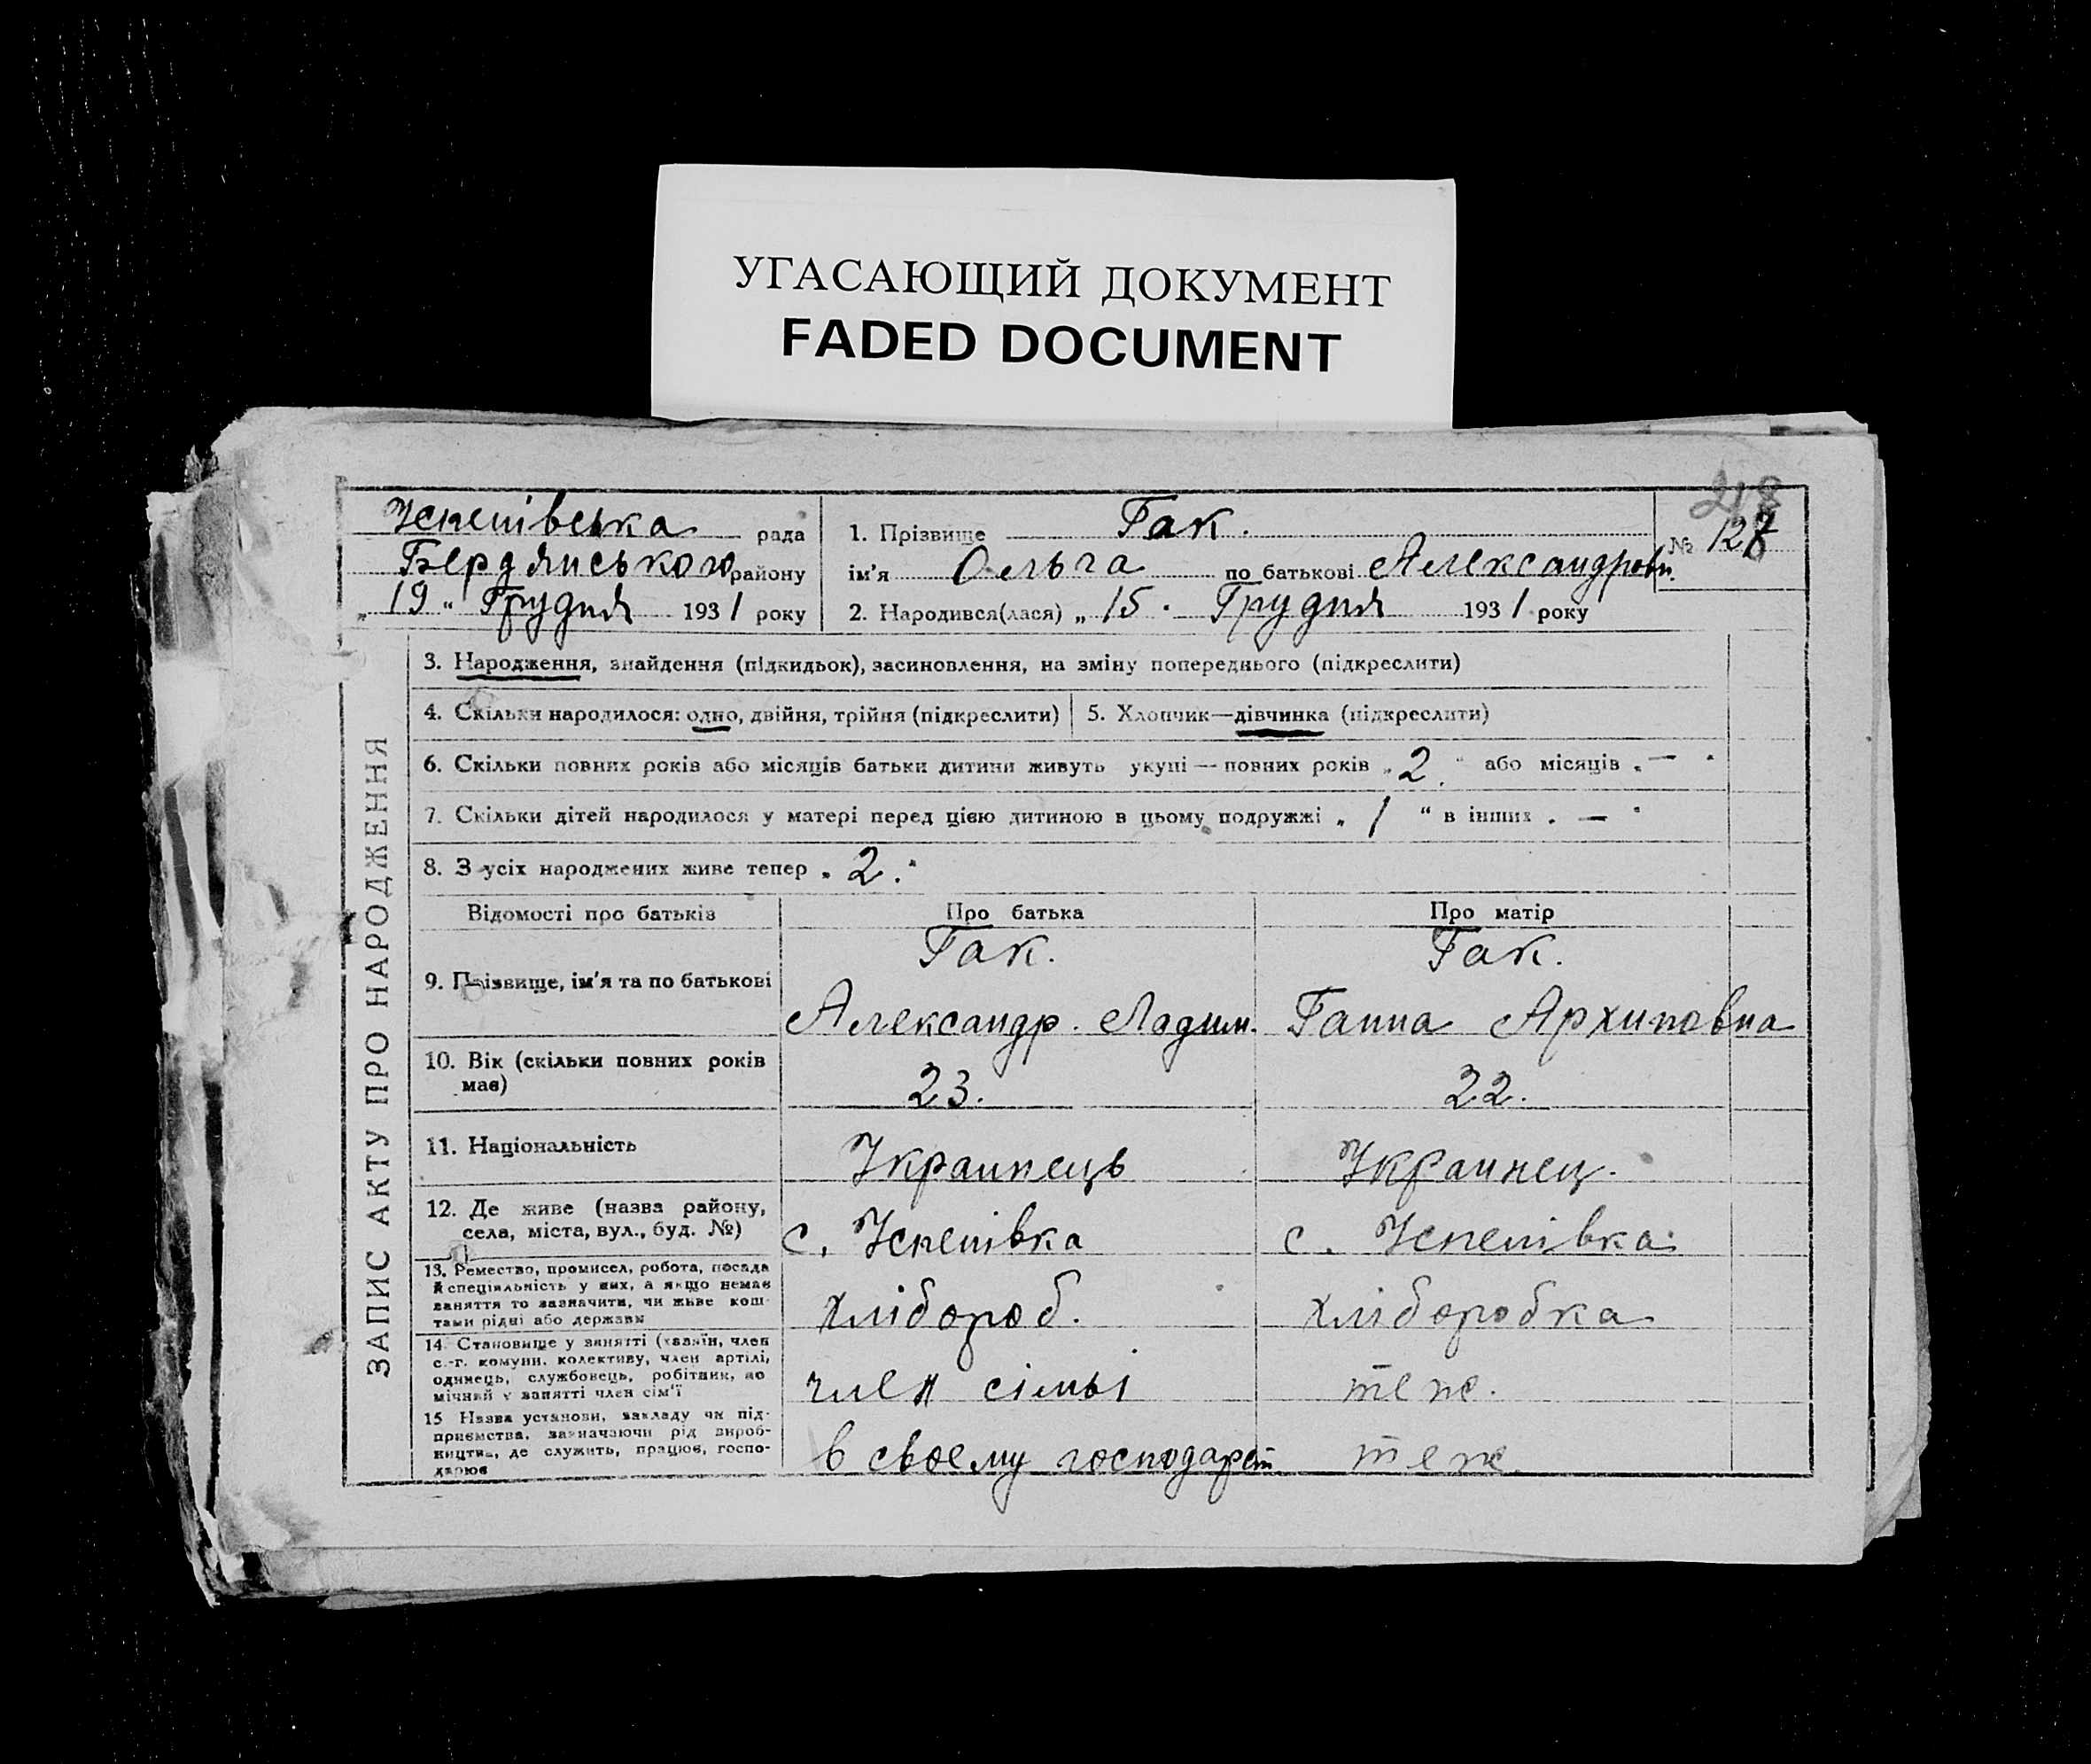 УГАСАЮЩИЙ ДОКУМЕНТ
FADED DOCUMENT
218
Успенівська рада
Бердянського району
„ 19 " Грудня 1931 року
1. Прізвище Гак.
ім'я Ольга по батькові Александровн.
2. Народився(лася) „ 15 . Грудня 1931 року
№ 127
ЗАПИС АКТУ ПРО НАРОДЖЕННЯ
3. Народження, знайдення (підкидьок), засиновлення, на зміну попереднього (підкреслити)
4. Скільки народилося: одно, двійня, трійня (підкреслити)
5. Хлопчик—дівчинка (підкреслити)
6. Скільки повних років або місяців батьки дитини живуть укупі — повних років „ 2 " або місяців „ — "
7. Скільки дітей народилося у матері перед цією дитиною в цьому подружжі „ 1 " в інших „ — "
8. З усіх народжених живе тепер „ 2 . "
Відомості про батьків
Про батька
Про матір
9. Прізвище, ім'я та по батькові
Гак.
Александр.
Гак.
Ганна Архиповна
10. Вік (скільки повних років
має)
23.
22.
11. Національність
Украинець
Украинец.
12. Де живе (назва району,
села, міста, вул., буд. №)
с. Успенівка
с. Успенівка
13. Ремество, промисел, робота, посада
й спеціяльність у них, а якщо немає
заняття то зазначити, чи живе кош-
тами рідні або держави
хлібороб.
хліборобка
14. Становище у занятті (хазяїн, член
с.-г. комуни, колективу, член артілі,
одинець, службовець, робітник, по
мічний у занятті член сім'ї
член сімьі
теж.
15 Назва установи, закладу чи під-
приємства, зазначаючи рід вироб-
ництва, де служить, працює, госпо-
дарює
в своему господарст
теж